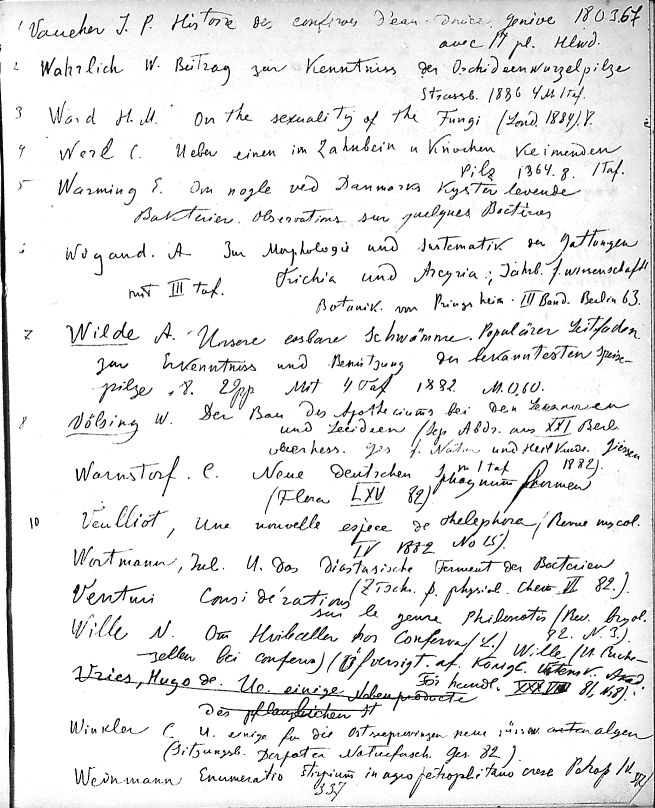 1 Vaucher J. P. Histoire des conferves d'eau douce, Genève 1803. 67
avec 17 pl. Hlwd.
2 Wahrlich W. Beitrag zur Kenntniss der Orchideenwurzelpilze
Strassb. 1886 4 M 1 taf.
3 Ward H. M. On the sexuality of the Fungi (Lond. 1884) 8.
4 Werl C. Ueber einen im Zahnbein u Knochen Keimenden
Pilz 1364. 8. 1 Taf.
5 Warming E. Om nogle ved Danmarks Kyster levende
Bakterier. Observations sur quelques Bactéries
Wigand. A Zur Morphologie und Systematik der Gattungen
Trichia und Arcyria; Jahrb. f. wissenschaftl
mit III taf.
Botanik. von Pringsheim. III Band. Berlin 63.
7 Wilde A. Unsere essbare Schwämme. Populärer Leitfaden
zur Erkenntniss und Benützung der bekanntesten Speise-
pilze. 8. 29 pp Mit 4 Taf 1882 M. 0,60.
8 Völsing W. Der Bau des Apotheciums bei den
und Lecideen (Sep Abdr. aus XXI Ber d.
oberhess. Ges f. Natur und Heil Kunde. Giessen
m 1 taf 1882).
Warnstorf. C. Neue deutschen Sphagnum formen
(Flora LXV 82)
10 Veulliot, Une nouvelle espece de thelephora; (Revue mycol.
IV 1882 No 15).
Wortmann, Jul. U. das diastasische Ferment der Bacterien
(Ztsch. f. physiol. Chem VI 82.)
Venturi Considérations sur le genre Philonotis (Rev. bryol.
82. N. 3.)
Wille N. Om Hvileceller hos Conferva (L.) Wille (U. Ruhe-
zellen bei conferva) (Öfversigt. af. Köngl. Vetensk. Akad
Förhandl. XXXVIII 81, N. 8).
Vries, Hugo de. Ue. einige Nebenproducte
des pflanzlichen St
Winkler C U. einige für die Ostseeprovinzen neue süssw. algen
(Sitzungsb. Dorpater Naturfosch. Ges. 82)
Weinmann Enumeratio stirpium in agro petropolitano cresc Petrop
337